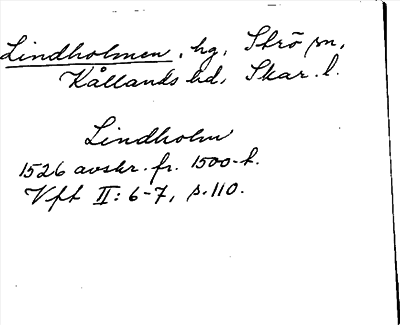 Lindholmen, hg, Strö sn,
Kållands hd, Skar. l.
Lindholm
1526 avskr. fr. 1500-t.
Vft II: 6-7, s. 110.